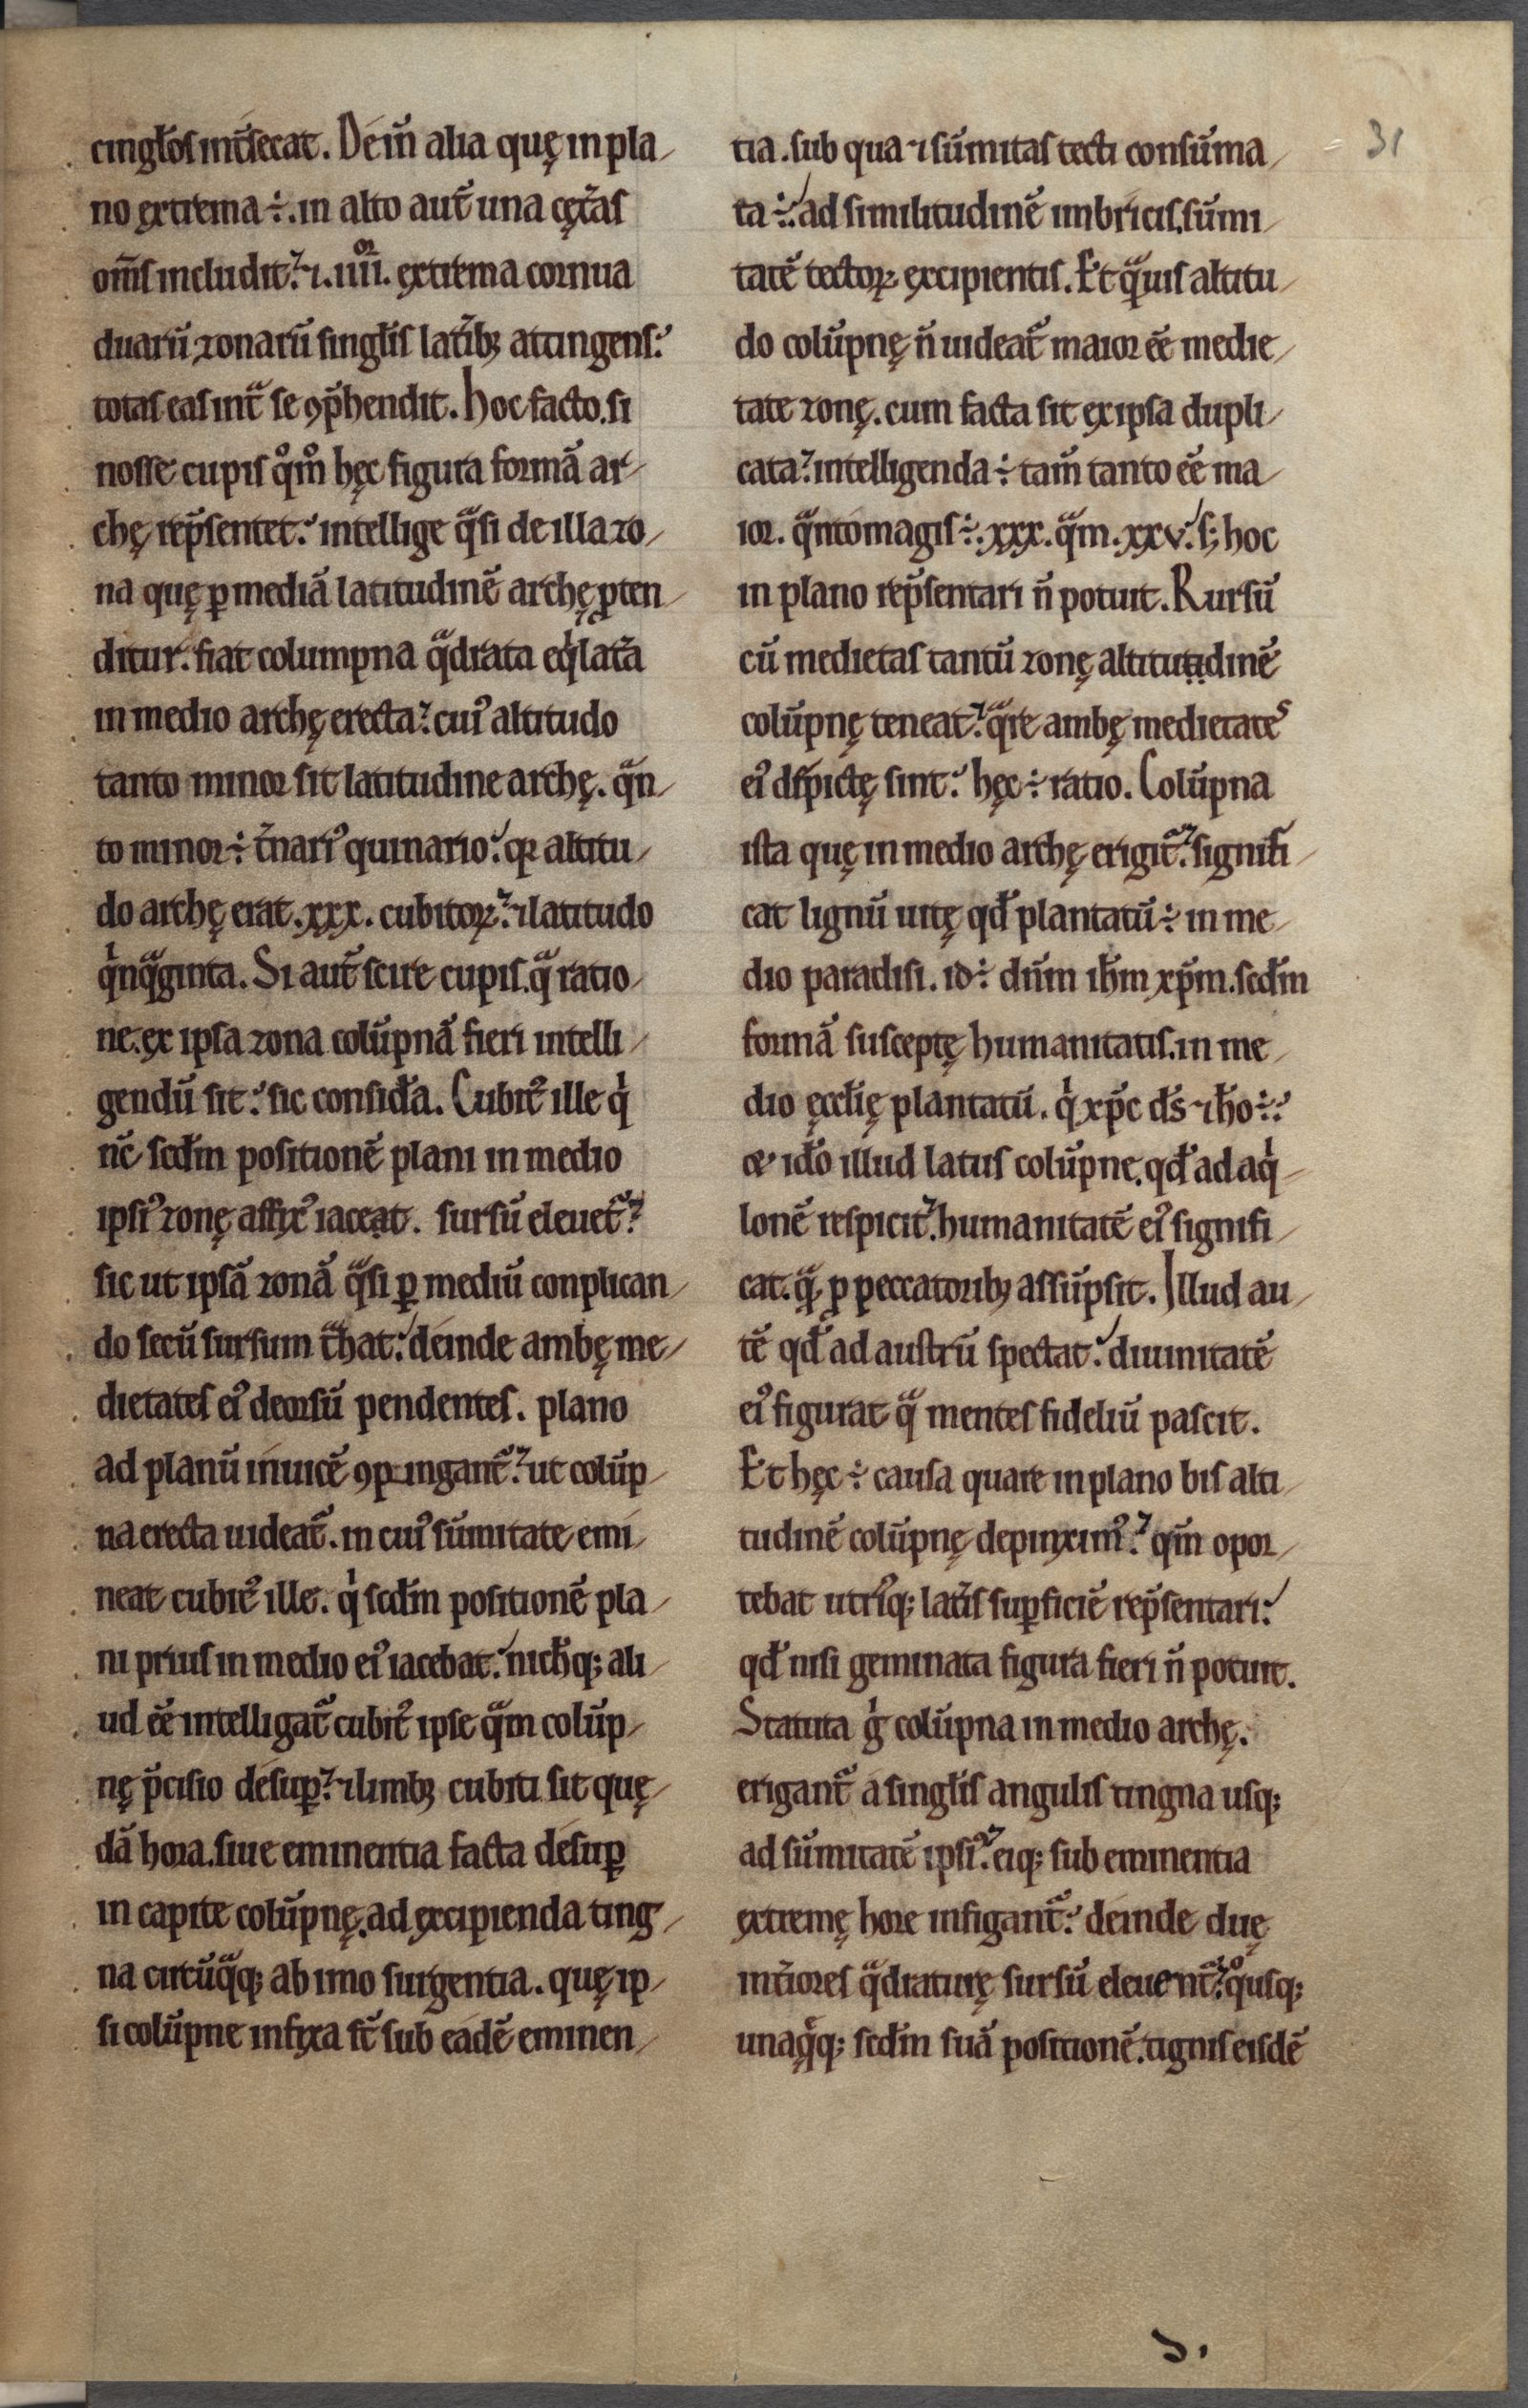 cingłos int̃secat. Dem̃ alia quę in pla-
no extrema ÷. in alto aut̃ una cęt̃as
om̃s includit᷑. ⁊ .iiii^or. extrema cornua
duarū zonarū singłis lat̃ibꝫ attingens.
totas eas int̃ se ꝯp̃hendit. hoc facto. si
nosse cupis qͦm̊ hęc figura formā ar-
chę rep̃sentet. intellige qͣsi de illa zo-
na quę ꝑ mediā latitudinē archę ꝓten-
ditur. fiat columpna qͣdrata eqͥlat̃a
in medio archę erecta. cuiꝰ altitudo
tanto minor sit latitudine archę. qͣn-
to minor ÷ t̃nariꝰ quinario. qꝛ altitu-
do archę erat .xxx. cubitoꝝ. ⁊ latitudo
qͥnqͣginta. Si aut̃ scire cupis. qͣ ratio-
ne. ex ipsa zona colūpnā fieri intelli-
gendū sit. sic consid̃a. Cubitꝰ ille qͥ
nc̃ scd̃m positionē plani in medio
ipsiꝰ zonę affixꝰ iaceat. sursū eleuet᷑.
sic ut ipsā zonā qͣsi ꝑ mediū conplican-
do secū sursum t̃hat. deinde ambę me-
dietates eiꝰ deorsū pendentes. plano
ad planū inuicē ꝯpingant᷑. ut colūp-
na erecta uideat᷑. in cuiꝰ sūmitate emi-
neat cubitꝰ ille. qͥ scd̃m positionē pla-
ni prius in medio eiꝰ iacebat. nichꝉqꝫ ali-
ud ēē intelligat᷑ cubitꝰ ipse qͣm colūp-
nę p̃cisio desuꝑ. ⁊ limbꝫ cubiti sit quę-
dā hora. siue eminentia facta desuꝑ
in capite colūpnę. ad excipienda ting-
na circūqͣqꝫ ab imo surgentia. quę ip-
si colūpne infixa st̃ sub eadē eminen-
tia. sub qua ⁊ sūmitas tecti consūma-
ta ÷. ad similitudinē imbricis. sūmi-
tatē tectoꝝ excipientis. Et qͣuis altitu-
do colūpnę ñ uideat᷑ maior ēē medie-
tate zonę. cum facta sit ex ipsa dupli-
cata. intelligenda ÷ tam̃ tanto ēē ma-
ior. qͣnto magis ÷ .xxx. qͣm .xxv. sꝫ hoc
in plano rep̃sentari ñ potuit. Rursū
cū medietas tantū zonę altitutidinē
colūpnę teneat. qͣre ambę medietates
eiꝰ dep̃ictę sint. hęc ÷ ratio. Colūpna
ista quę in medio archę erigit᷑. signifi-
cat lignū uitę qđ plantatū ÷ in me-
dio paradisi. id ÷ dn̄m ihm̄ xp̄m. scd̃m
formā susceptę humanitatis. in me-
dio ęccłię plantatū. qͥ xp̄c ds̄ ⁊ hō ÷.
& id̃o illud latus colūpne. qđ ad aqͥ-
lonē respicit. humanitatē eiꝰ signifi-
cat. qͣ ꝓ peccatoribꝫ assūpsit. Illud au-
tē qđ ad austrū spectat. diuinitatē
eiꝰ figurat qͣ mentes fideliū pascit.
Et hęc ÷ causa quare in plano bis alti-
tudinē colūpnę depinximꝰ. qm̄ opor-
tebat utriꝰqꝫ lat̃is suꝑficiē rep̃sentari.
qđ nisi geminata figura fieri ñ potuit.
Statuta gͥ colūpna in medio archę.
erigant᷑ a singłis angulis tingna usqꝫ
ad sūmitatē ipsiꝰ. eiqꝫ sub eminentia
extremę hore infigant᷑. deinde duę
int̃iores qͣdraturę sursū eleuent᷑. qͦusqꝫ
unaqͣqꝫ scd̃m suā positionē. tignis eisdē
31